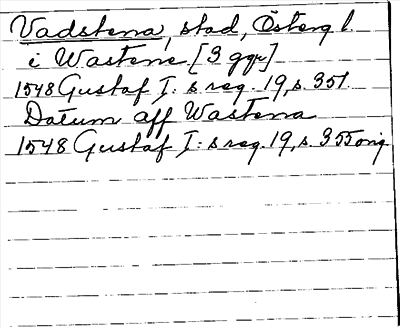 Vadstena, stad, Österg l.
i Wastene [3 ggr]
1548 Gustaf I:s reg. 19, s. 351
Datum aff Wastena
1548 Gustaf I:s reg. 19, s. 355 orig.